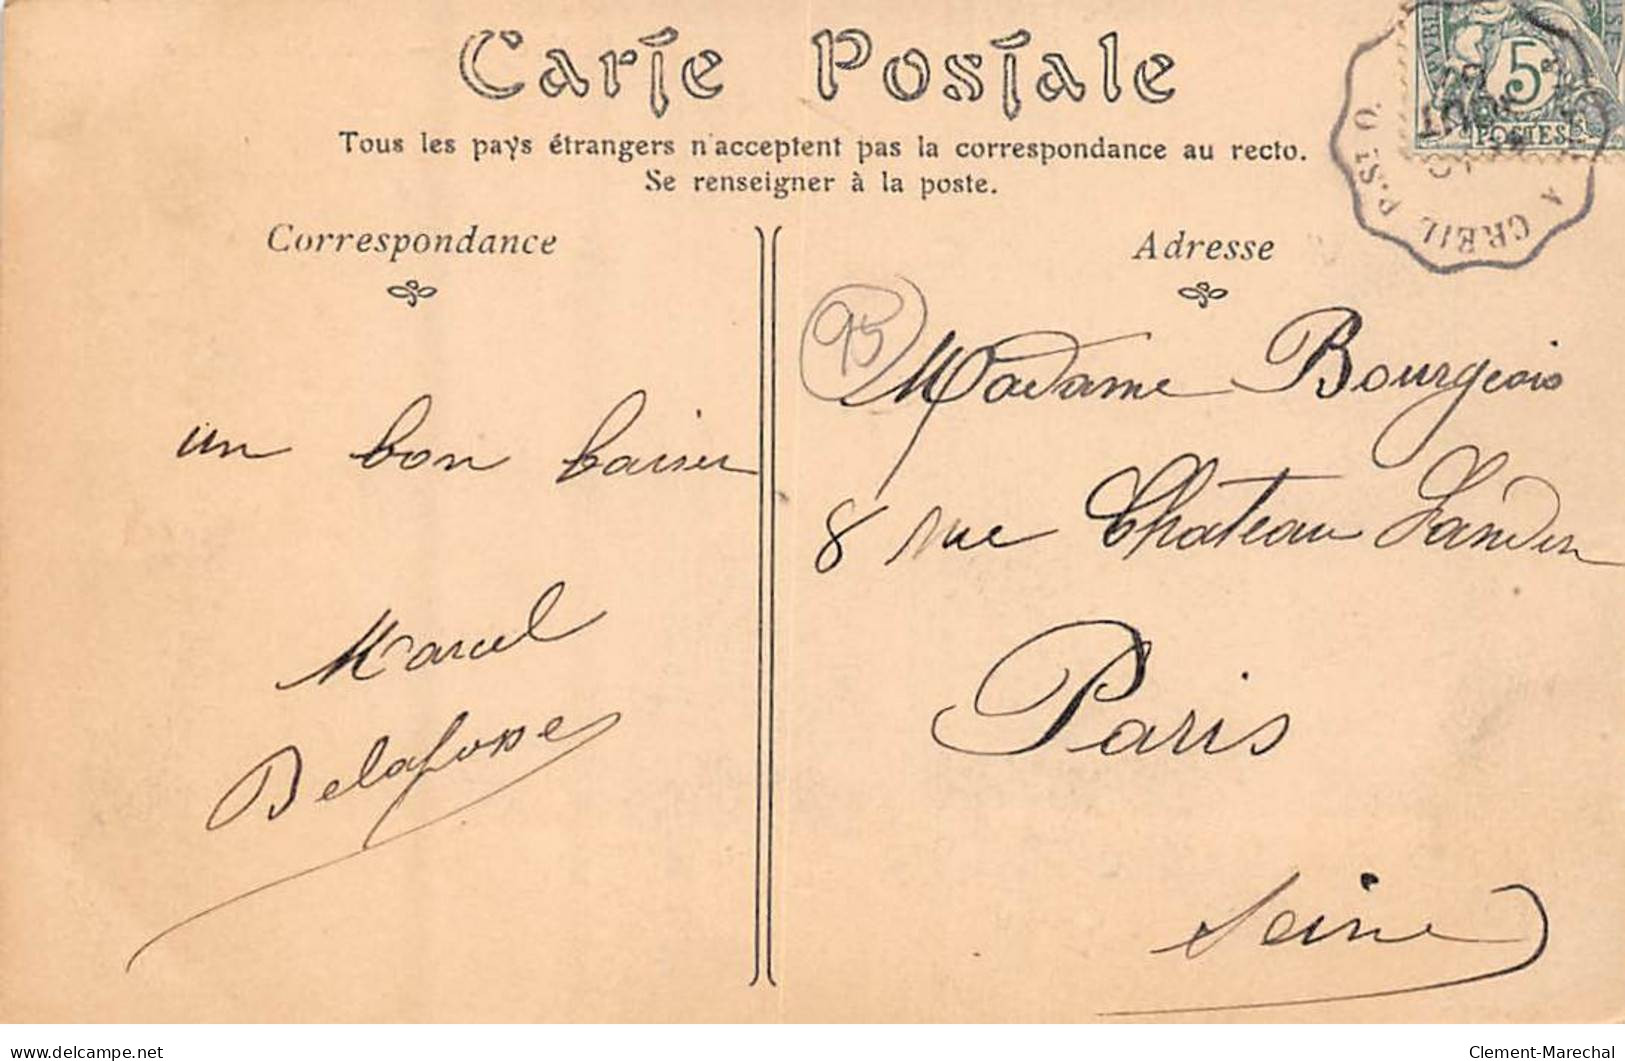 Carte Postale
Tous les pays étrangers n'acceptent pas la correspondance au recto.
Se renseigner à la poste.
Correspondance
Adresse
5
POSTES
A CREIL P. ST O.
95
un bon baiser
Marcel
Delafosse
Madame Bourgeois
8 rue Chateau Landon
Paris
Seine
Clement-Marechal